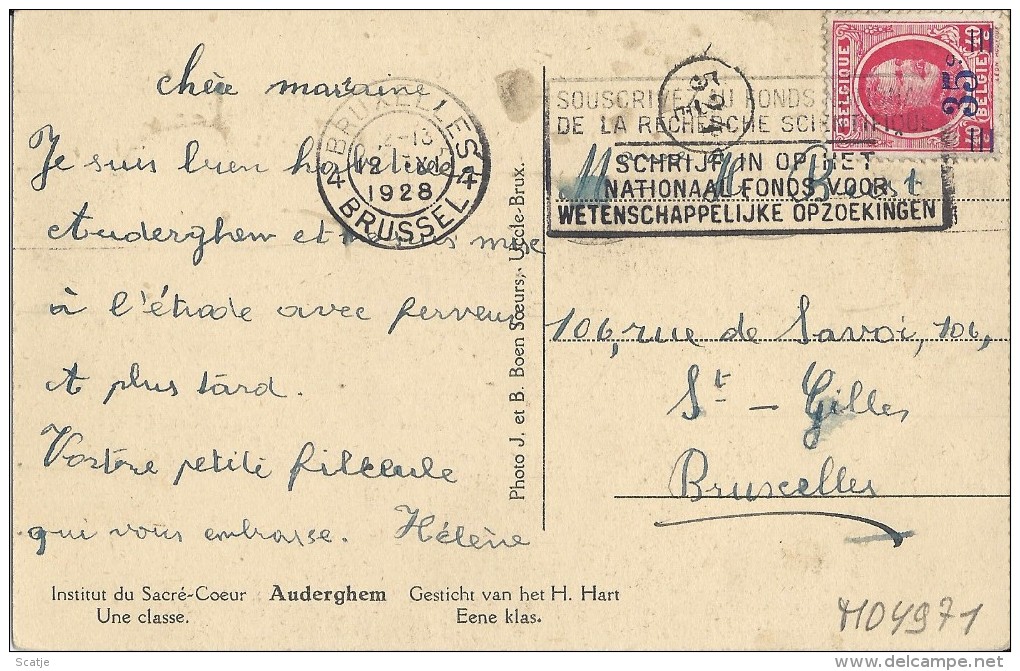 chère marraine
Je suis bien
Auderghem et mise
à l'étude avec ferveur
et plus tard.
petite filleule
qui vous embrasse. Hélène
Institut du Sacré-Coeur Auderghem Gesticht van het H. Hart
Une classe. Eene klas.
Photo J. et B. Boen Sœurs, Uccle-Brux.
BRUXELLES
1928
4 BRUSSEL 4
SOUSCRIVEZ AU FONDS
DE LA RECHERCHE SCIENTIFIQUE
SCHRIJF IN OP HET
NATIONAAL FONDS VOOR
WETENSCHAPPELIJKE OPZOEKINGEN
BELGIQUE
35c
BELGIE
106, rue de Savoi, 106,
St - Gilles
Bruxelles
Scatje
delcampe.net